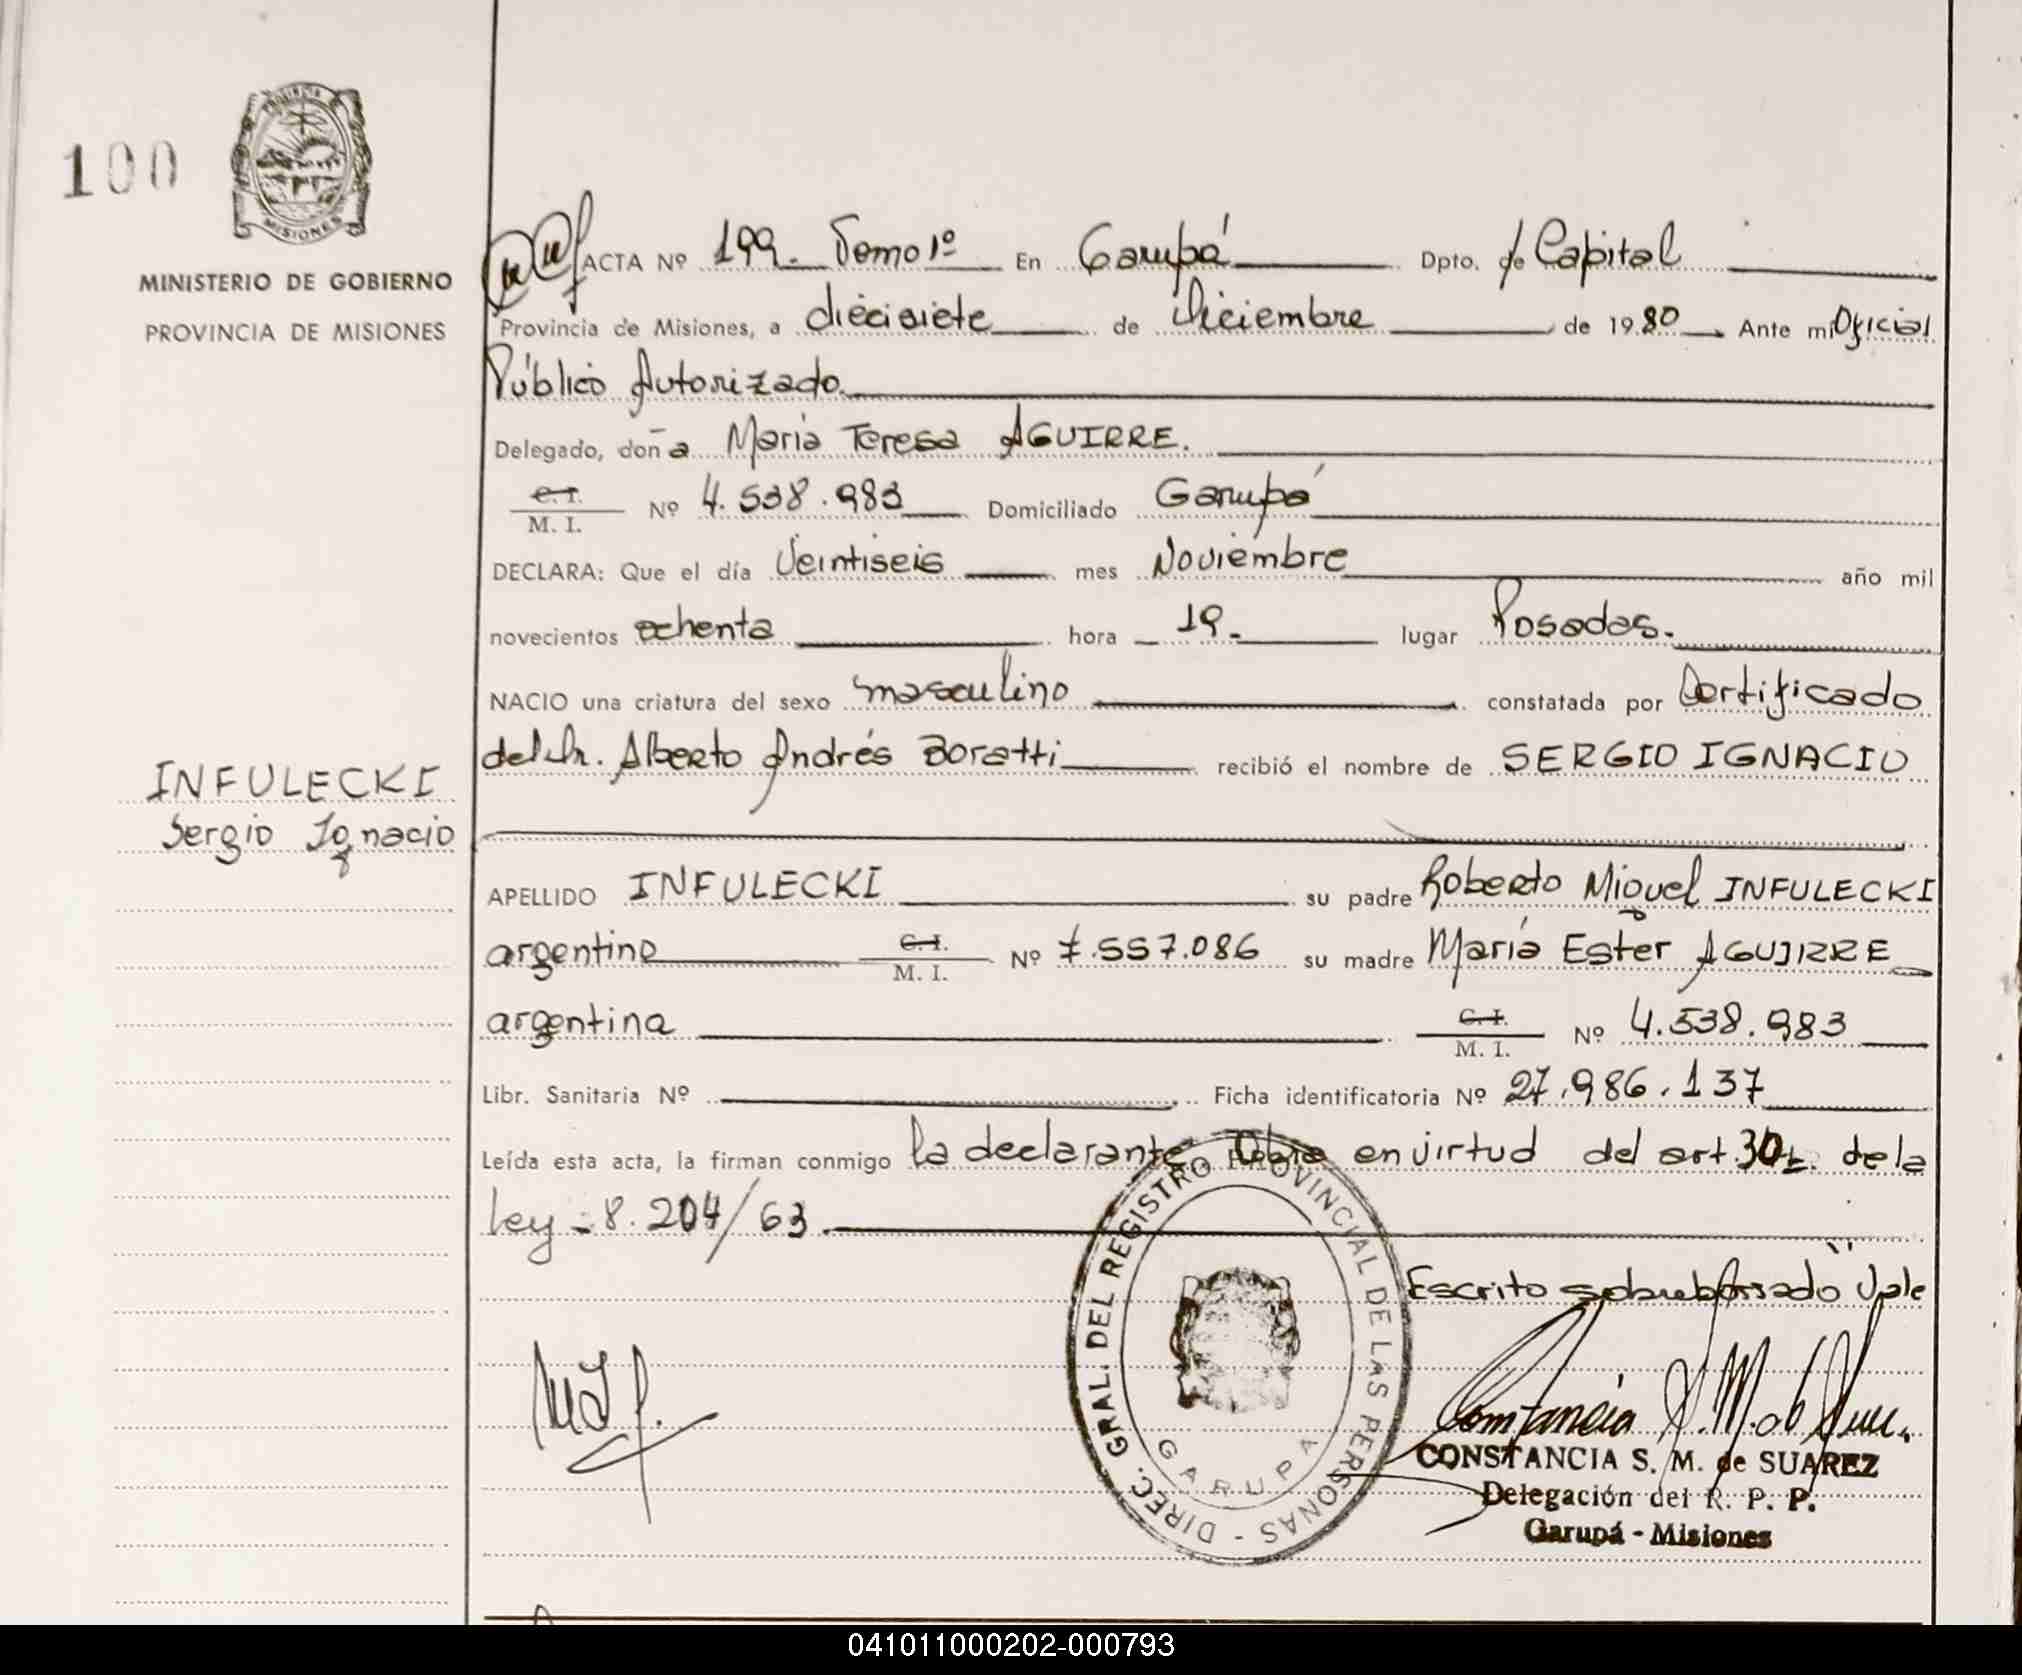 100
PROVINCIA DE
MISIONES
MINISTERIO DE GOBIERNO
PROVINCIA DE MISIONES
ACTA Nº 199. Tomo 1º En Garupá Dpto. de Capital
Provincia de Misiones, a diecisiete de Diciembre de 1980 Ante mi Oficial
Público Autorizado.
Delegado, doña Maria Teresa AGUIRRE.
C. I. / M. I. Nº 4.538.983 Domiciliado Garupá
DECLARA: Que el día Veintiseis mes Noviembre año mil
novecientos ochenta hora 19. lugar Posadas.
NACIO una criatura del sexo masculino constatada por Certificado
del Dr. Alberto Andrés Boratti recibió el nombre de SERGIO IGNACIO
INFULECKI
Sergio Ignacio
APELLIDO INFULECKI su padre Roberto Miguel INFULECKI
argentino C. I. / M. I. Nº 7.557.086 su madre María Ester AGUIRRE
argentina C. I. / M. I. Nº 4.538.983
Libr. Sanitaria Nº Ficha identificatoria Nº 27.986.137
Leída esta acta, la firman conmigo la declarante Obra en virtud del art. 30 de la
Ley - 8.204/63.
Escrito sobreborrado Vale
DIREC. GRAL. DEL REGISTRO PROVINCIAL DE LAS PERSONAS -
GARUPA
CONSTANCIA S. M. de SUAREZ
Delegación del R. P. P.
Garupá - Misiones
041011000202-000793